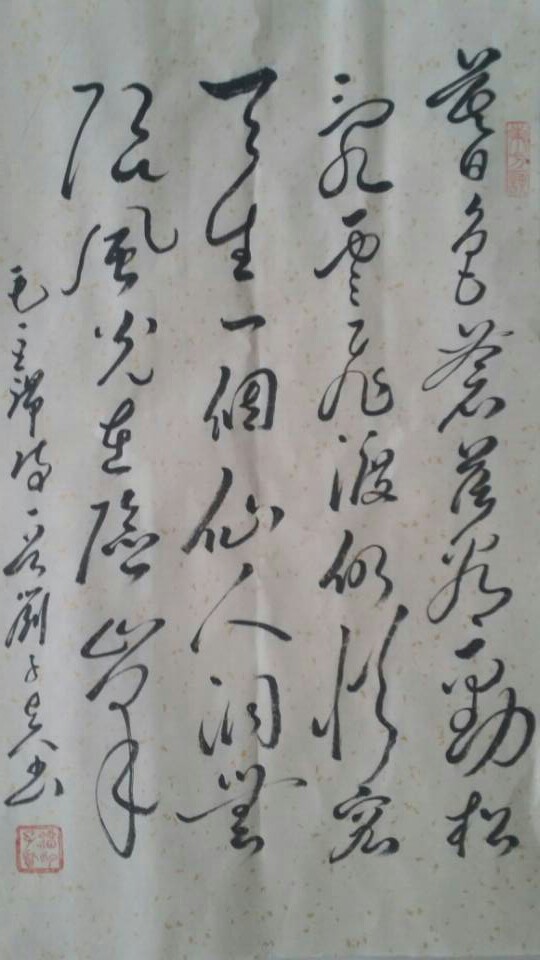 暮色蒼茫看勁松
亂雲飛渡仍從容
天生一個仙人洞無
限風光在險峰
毛主席詩一首劉子書